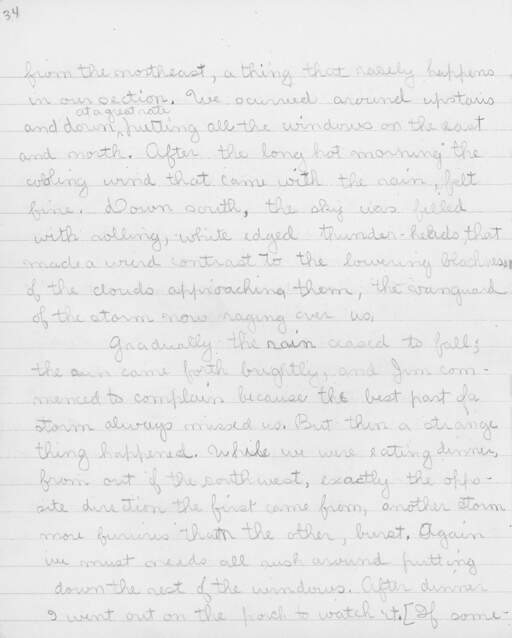 34
from the northeast, a thing that rarely happens
in our section. We scurried around upstairs
at a great rate
and down, putting all the windows on the east
and north. After the long hot morning the
cooling wind that came with the rain, felt
fine. Down south, the sky was filled
with rolling, white edged thunder-heads, that
made a weird contrast to the lowering blackness
of the clouds approaching them, the vanguard
of the storm now raging over us.
Gradually the rain ceased to fall;
the sun came forth brightly, and Jim com-
menced to complain because the best part of a
storm always missed us. But then a strange
thing happened. While we were eating dinner,
from out of the southwest, exactly the oppo-
site direction the first came from, another storm
more furious than the other, burst. Again
we must needs all rush around putting
down the rest of the windows. After dinner
I went out on the porch to watch it. [If some-